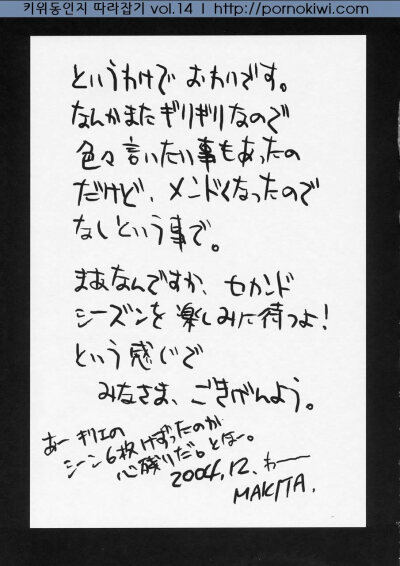 키위동인지 따라잡기 vol.14 | http://pornokiwi.com
というわけで おわりです。
なんかまたギリギリなので
色々言いたい事もあったの
だけど、メンドくなったので
なしという事で。
まあなんですか、セカンド
シーズンを楽しみに待つよ!
という感じで
みなさま、ごきげんよう。
あー キリエの
シーン6枚けずったのが
心残りだ。とほー。
2004.12. わー
MAKITA.